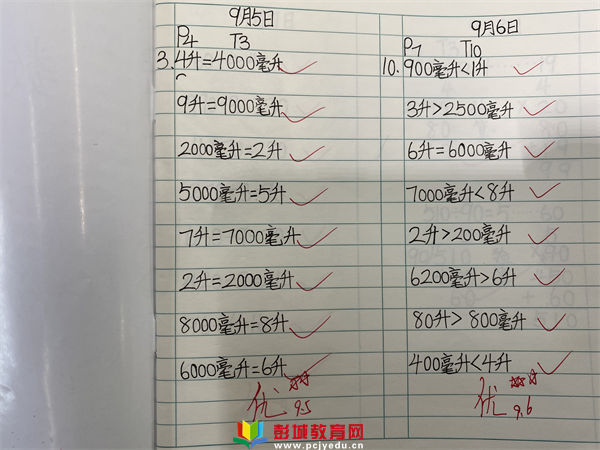 9月5日
P4 T3
3.4升=4000毫升
9升=9000毫升
2000毫升=2升
5000毫升=5升
7升=7000毫升
2升=2000毫升
8000毫升=8升
6000毫升=6升
优
9.5
9月6日
P7 T10
10.900毫升<1升
3升>2500毫升
6升=6000毫升
7000毫升<8升
2升>200毫升
6200毫升>6升
80升>800毫升
400毫升<4升
优
9.6
彭城教育网
www.pcjyedu.cn